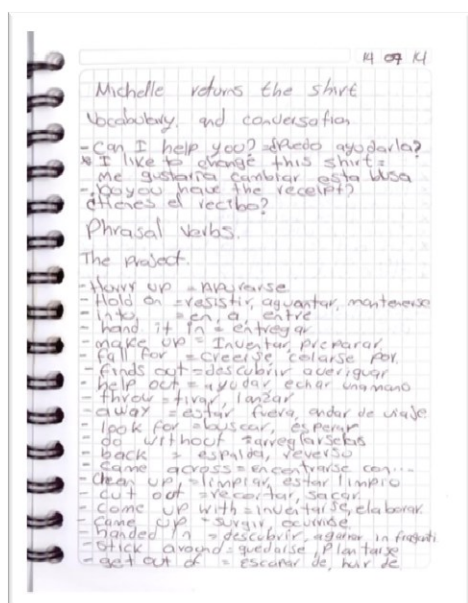 14 07 14
Michelle returns the shirt
Vocabulary, and conversation
- Can I help you? = ¿Puedo ayudarla?
* I like to change this shirt =
me gustaría cambiar esta blusa
- Do you have the receipt?
¿tienes el recibo?
Phrasal verbs.
The project.
- Hurry up = apurarse
- Hold on = resistir, aguantar, mantenerse
- into = en, a, entre
- hand it in = entregar
- make up = Inventar, preparar
- fall for = creerse, colarse por
- finds out = descubrir averiguar
- help out = ayudar, echar una mano
- throw = tirar, lanzar
- away = estar fuera, andar de viaje
- look for = buscar, esperar
- do without = arreglarselas
- back = espalda, reverso
- came across = encontrarse con...
- clean up = limpiar, estar limpio
- cut out = recortar, sacar
- come up with = inventarse, elaborar
- came up = surgir ocurrirse
- handed in = descubrir, agarrar in fraganti
- stick around = quedarse, plantarse
- get out of = escapar de, huir de